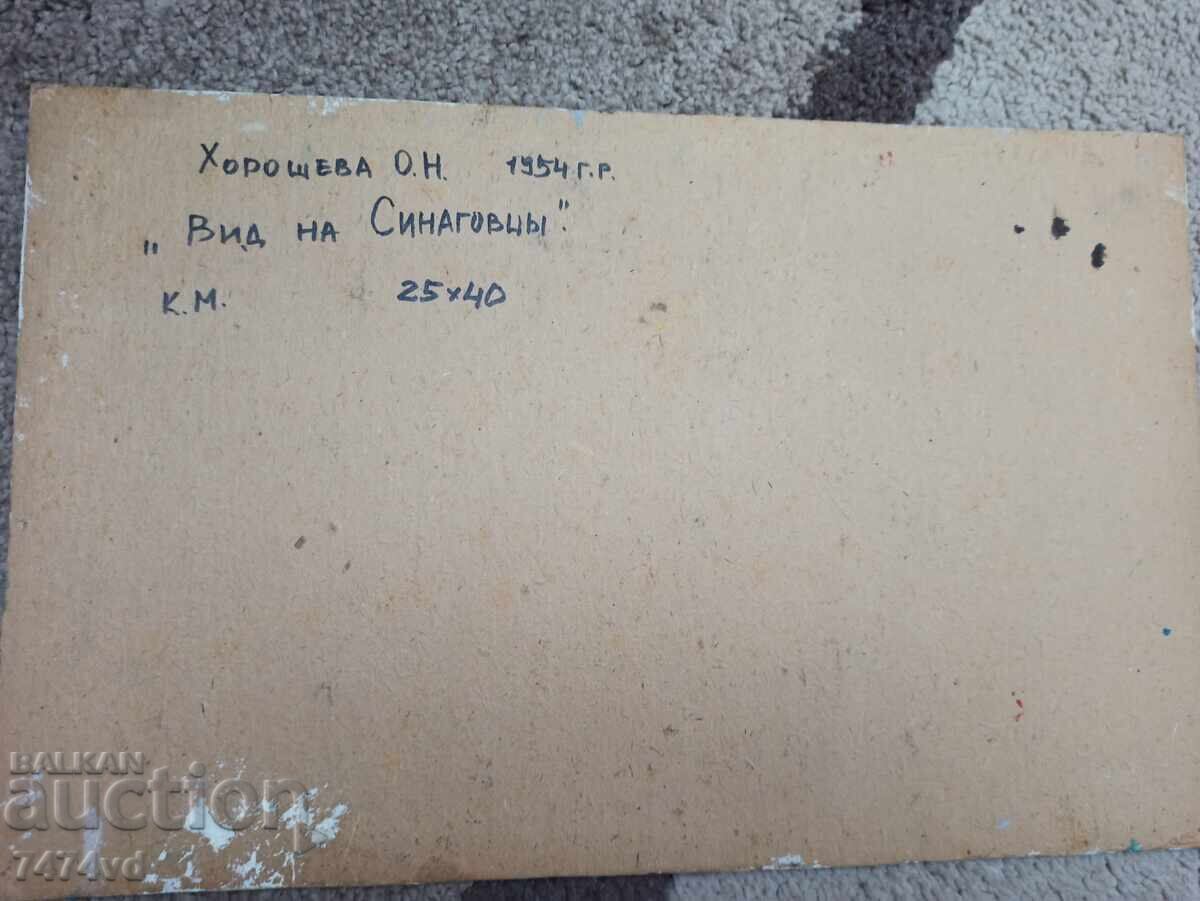 Хорошева О.Н. 1954 г.р.
„Вид на Синаговцы".
К.М. 25х40
BALKAN
auction
7474vd